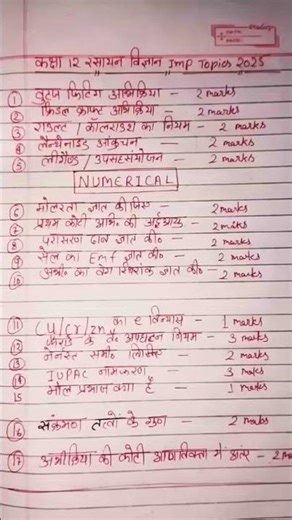 कक्षा 12 रसायन विज्ञान Imp Topics 2025
① वुर्ट्ज फिटिंग अभिक्रिया — 2 marks
② फ्रिडल क्राफ्ट अभिक्रिया — 2 marks
③ राउल्ट / कॉलराउश का नियम — 2 marks
④ लैन्थेनाइड आकुंचन — 2 marks
⑤ लीगैण्ड / उपसहसंयोजन — 2 marks
NUMERICAL
⑥ मोलरता ज्ञात कीजिए — 2 marks
⑦ प्रथम कोटी अभि. की अर्द्धआयु — 2 marks
⑧ परासरण दाब ज्ञात की० — 2 marks
⑨ सेल का Emf ज्ञात की० — 2 marks
⑩ अभि० का वेग स्थिरांक ज्ञात की० — 2 marks
⑪ Cu/Cr/Zn का e विन्यास — 1 marks
⑫ फैराडे के वै. अपघटन नियम — 3 marks
⑬ नेर्नस्ट समी० लिखिए — 2 marks
⑭ IUPAC नामकरण — 3 marks
15 मोल प्रभाज क्या है — 1 marks
⑯ संक्रमण तत्वों के गुण — 2 marks
⑰ अभीक्रिया की कोटी आणविकता में अंतर — 2